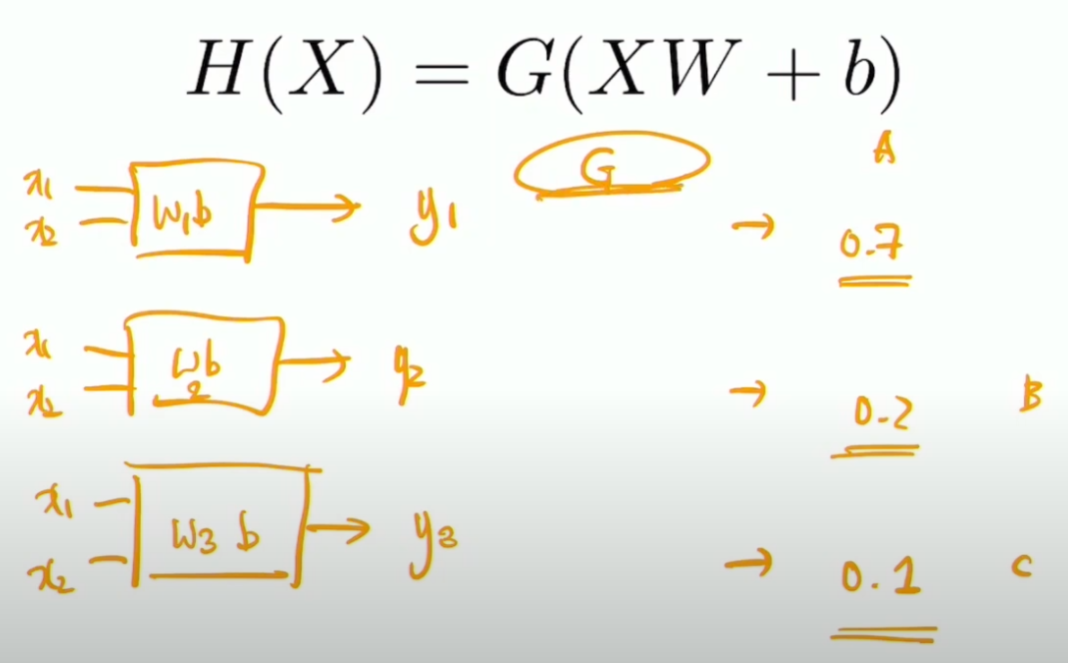 H(X) = G(XW + b)
G A
x1 x2 W1b → y1 → 0.7
x1 x2 Wb 2 → y2 → 0.2 B
x1 x2 W3 b → y3 → 0.1 C